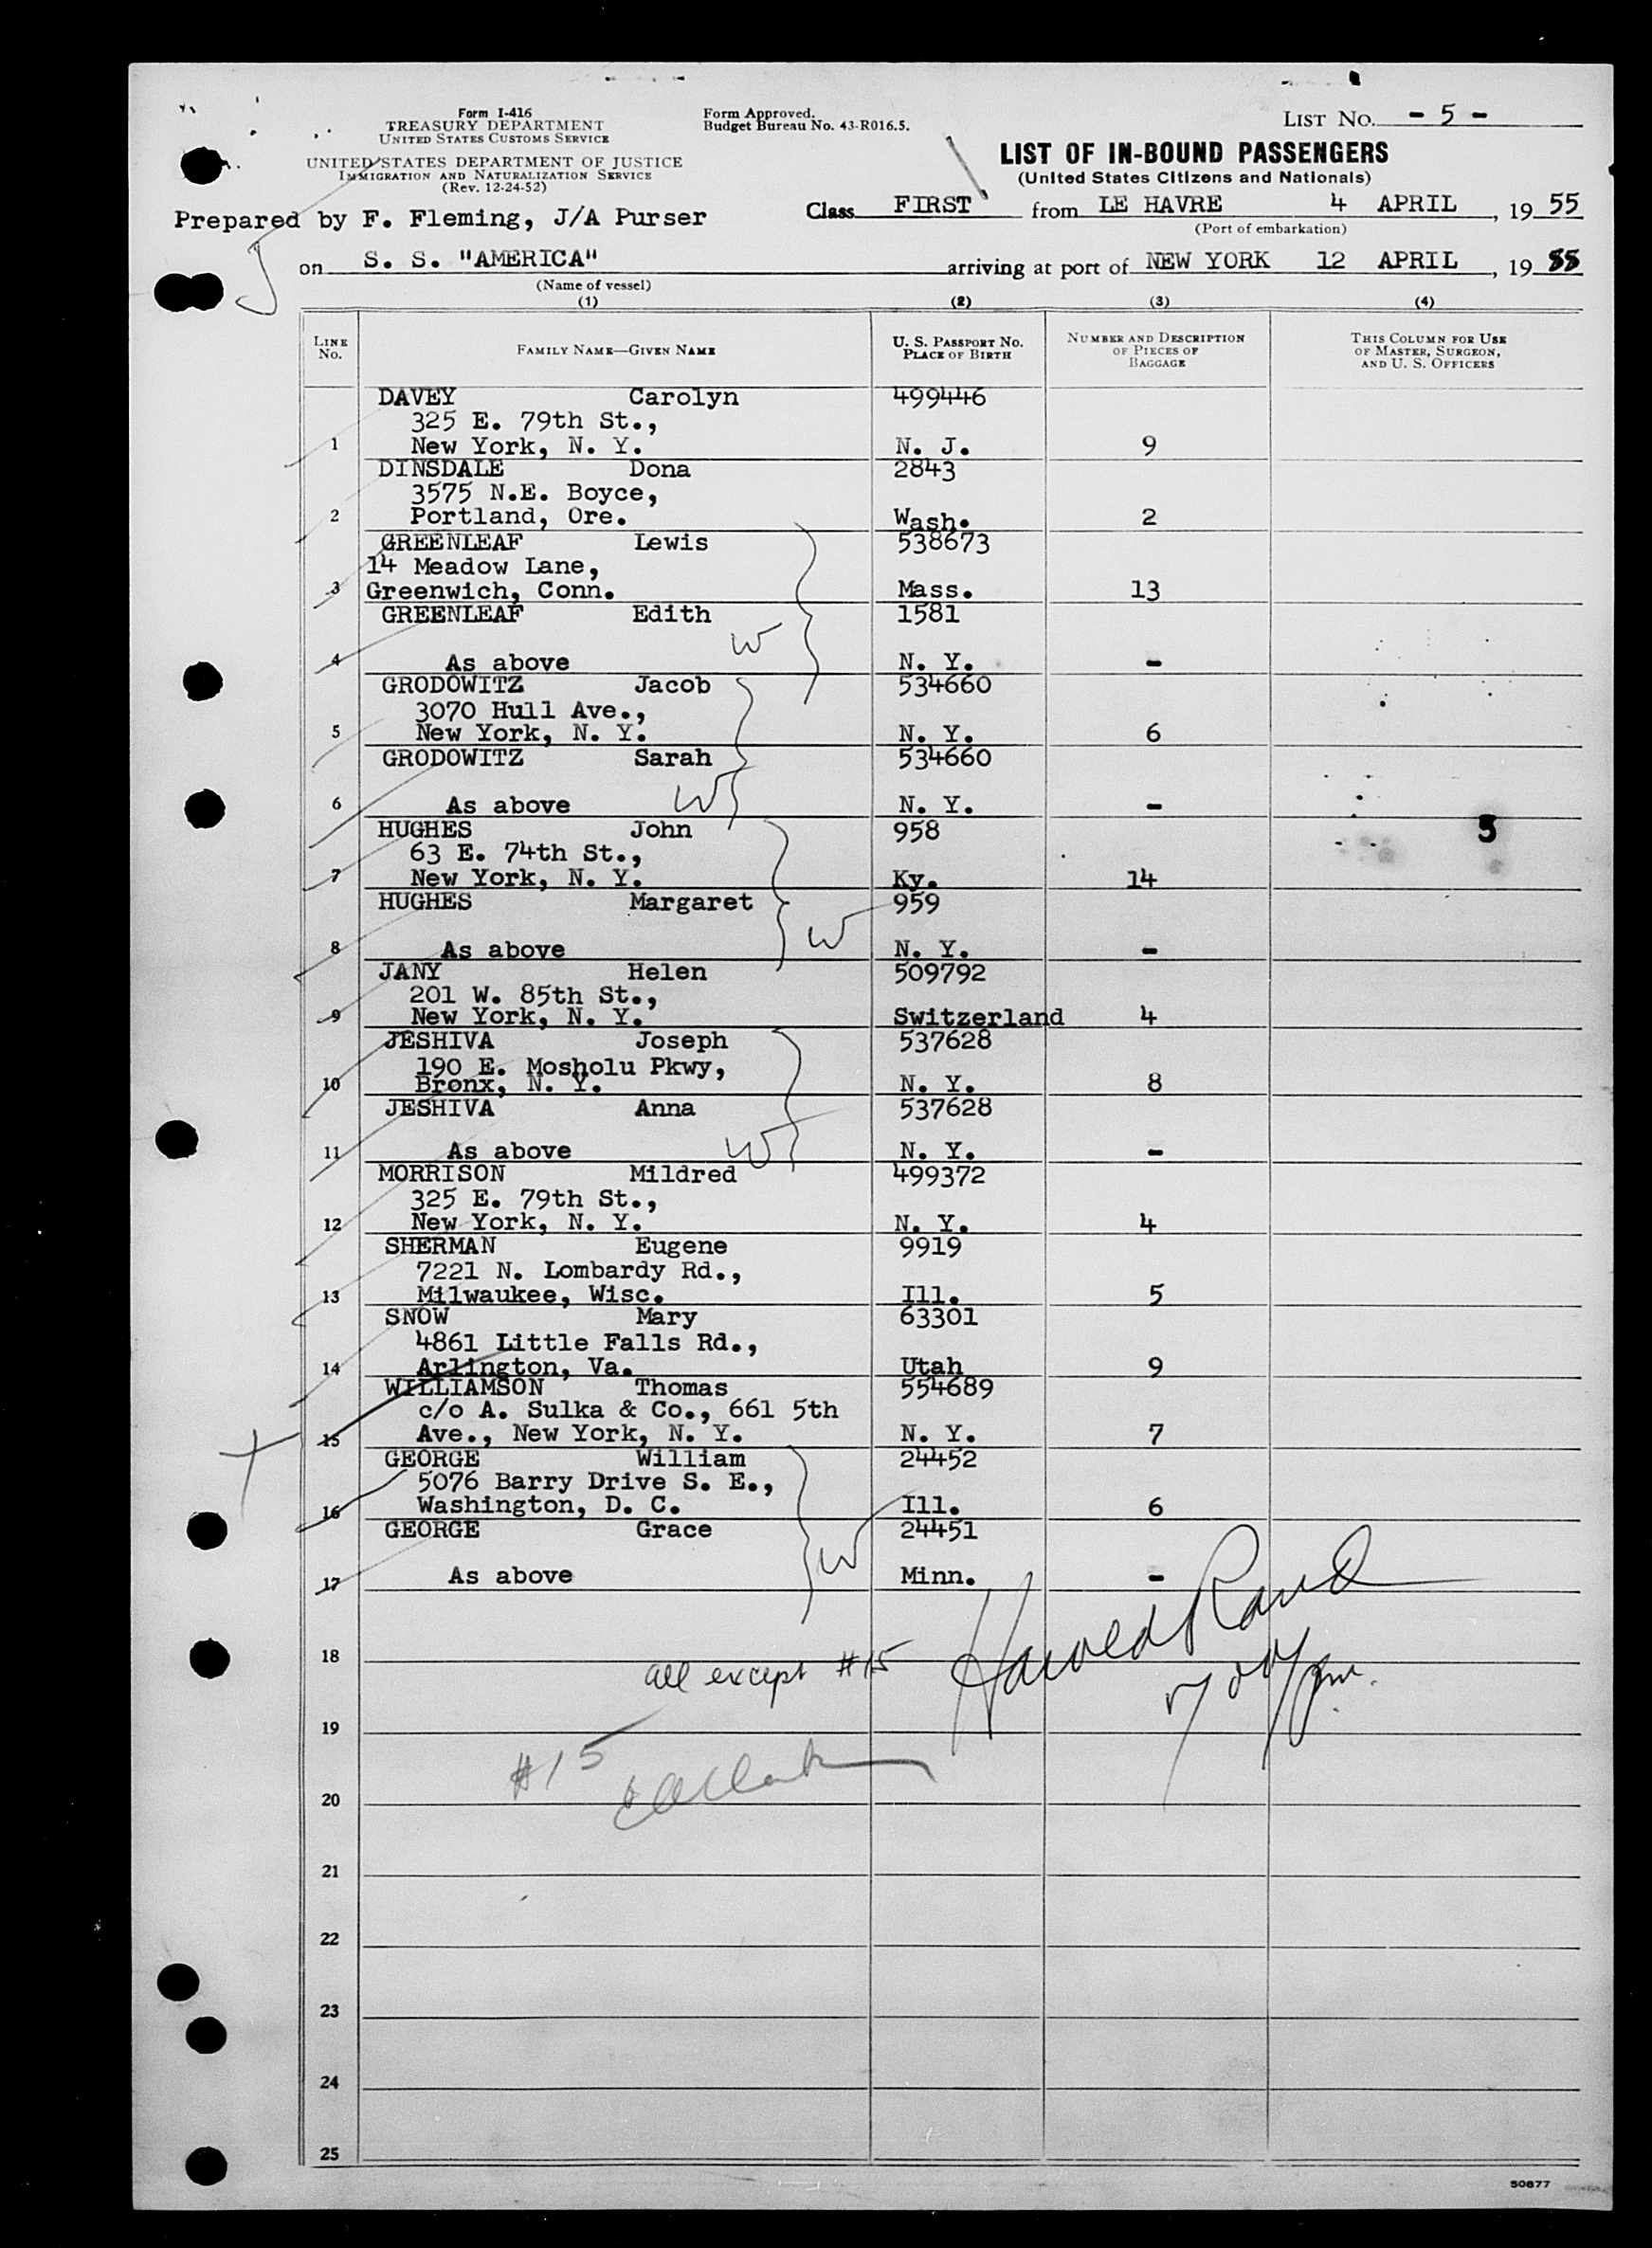 Form I-416
TREASURY DEPARTMENT
UNITED STATES CUSTOMS SERVICE
UNITED STATES DEPARTMENT OF JUSTICE
IMMIGRATION AND NATURALIZATION SERVICE
(Rev. 12-24-52)
Form Approved.
Budget Bureau No. 43-R016.5.
LIST NO. - 5 -
LIST OF IN-BOUND PASSENGERS
(United States Citizens and Nationals)
Prepared by F. Fleming, J/A Purser
Class FIRST from LE HAVRE 4 APRIL, 19 55
(Port of embarkation)
on S. S. "AMERICA" arriving at port of NEW YORK 12 APRIL, 19 55
(Name of vessel)
(1) (2) (3) (4)
LINE NO. FAMILY NAME—GIVEN NAME U. S. PASSPORT NO. PLACE OF BIRTH NUMBER AND DESCRIPTION OF PIECES OF BAGGAGE THIS COLUMN FOR USE OF MASTER, SURGEON, AND U. S. OFFICERS
DAVEY Carolyn 499446
325 E. 79th St.,
1 New York, N. Y. N. J. 9
DINSDALE Dona 2843
3575 N.E. Boyce,
2 Portland, Ore. Wash. 2
GREENLEAF Lewis 538673
14 Meadow Lane,
3 Greenwich, Conn. Mass. 13
GREENLEAF Edith 1581
W
4 As above N. Y. -
GRODOWITZ Jacob 534660
3070 Hull Ave.,
5 New York, N. Y. N. Y. 6
GRODOWITZ Sarah 534660
6 As above W N. Y. -
HUGHES John 958 5
63 E. 74th St.,
7 New York, N. Y. Ky. 14
HUGHES Margaret 959
8 As above W N. Y. -
JANY Helen 509792
201 W. 85th St.,
9 New York, N. Y. Switzerland 4
JESHIVA Joseph 537628
190 E. Mosholu Pkwy,
10 Bronx, N. Y. N. Y. 8
JESHIVA Anna 537628
11 As above W N. Y. -
MORRISON Mildred 499372
325 E. 79th St.,
12 New York, N. Y. N. Y. 4
SHERMAN Eugene 9919
7221 N. Lombardy Rd.,
13 Milwaukee, Wisc. Ill. 5
SNOW Mary 63301
4861 Little Falls Rd.,
14 Arlington, Va. Utah 9
WILLIAMSON Thomas 554689
c/o A. Sulka & Co., 661 5th
15 Ave., New York, N. Y. N. Y. 7
GEORGE William 24452
5076 Barry Drive S. E.,
16 Washington, D. C. Ill. 6
GEORGE Grace 24451
17 As above W Minn. -
18 all except #15 Harold Rand
19
#15
20
21
22
23
24
25
50877